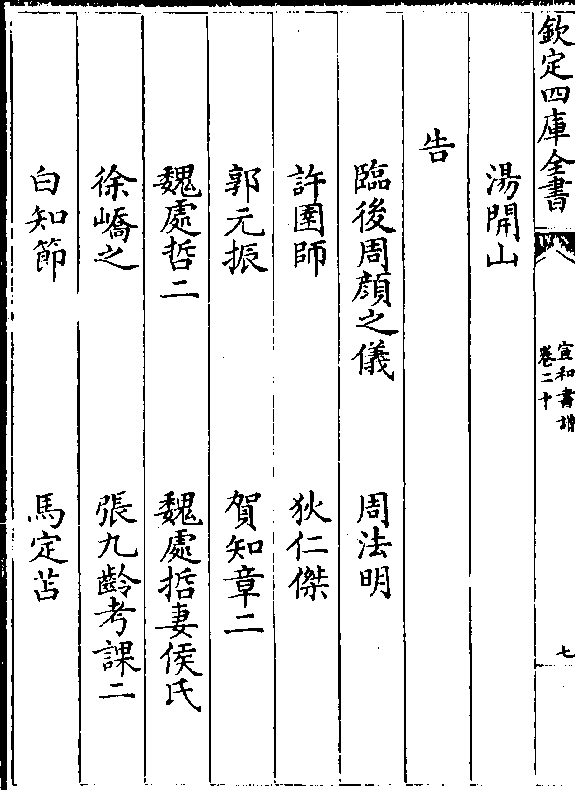 欽定四庫全書
宣和書譜
卷二十
七
湯開山
告
臨後周顔之儀 周法明
許圉師 狄仁傑
郭元振 賀知章二
魏處哲二 魏處哲妻侯氏
徐嶠之 張九齡考課二
白知節 馬定苫